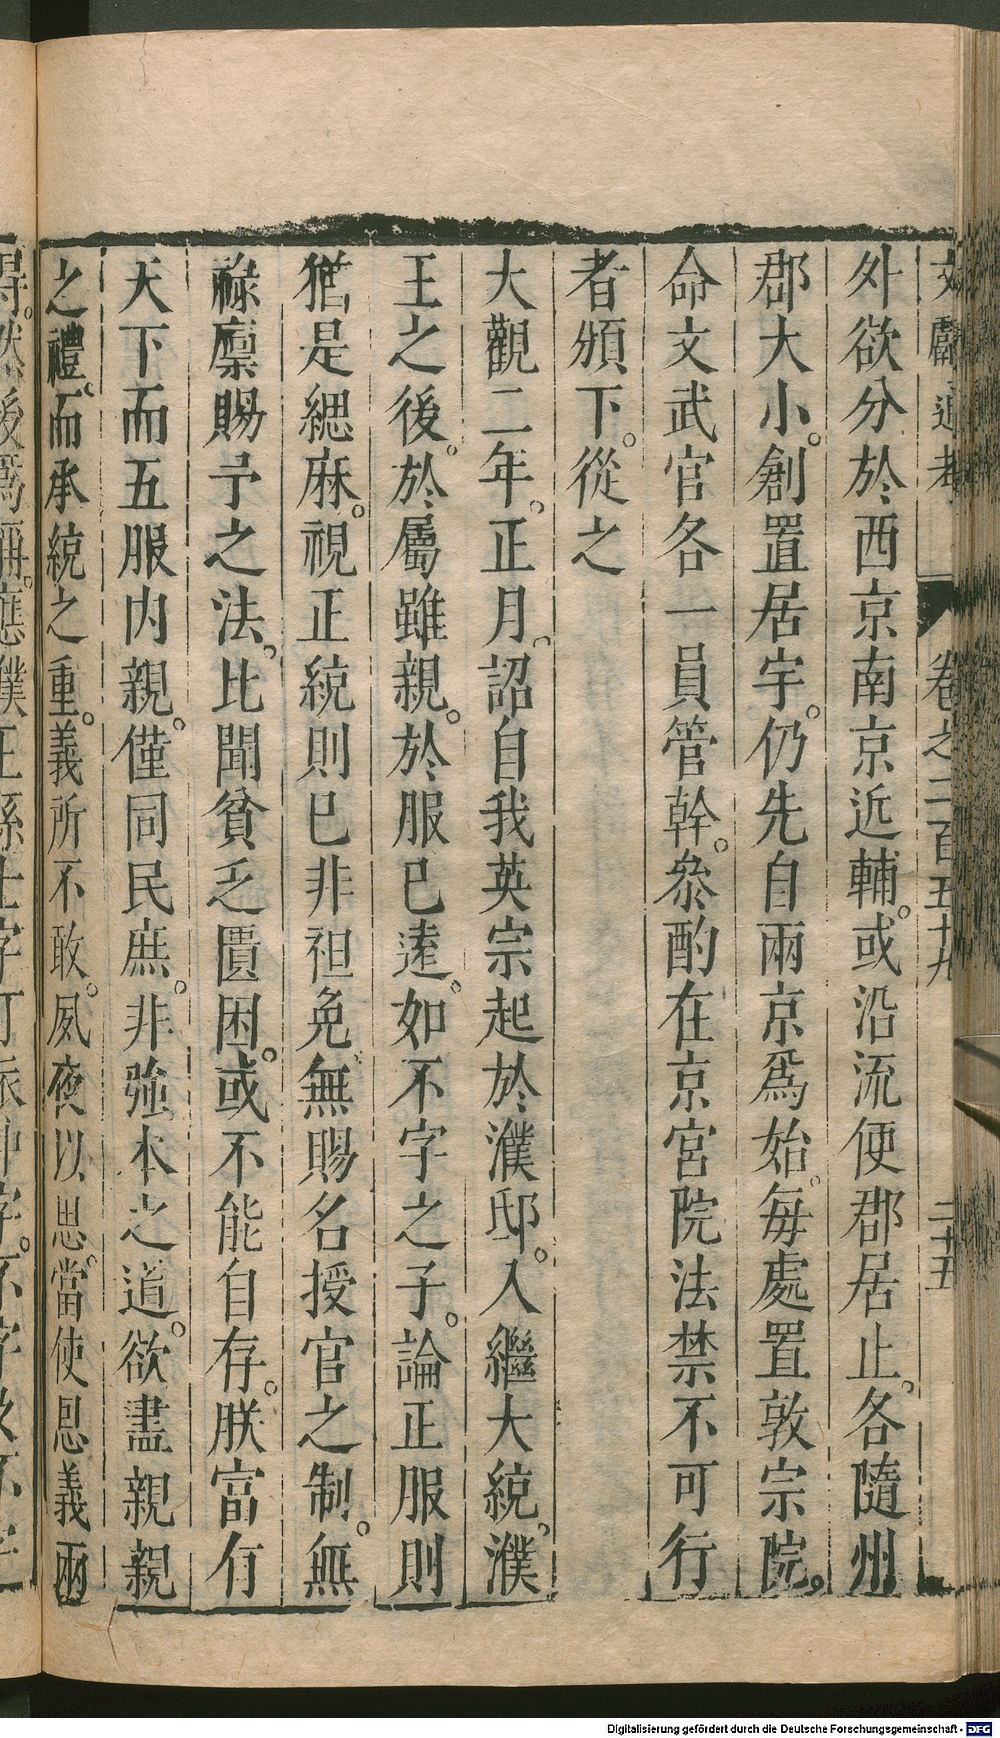 文獻通考 卷之二百五十九 二十五
外欲分於西京南京近輔。或沿流便郡居止。各隨州
郡大小。創置居宇。仍先自兩京爲始。每處置敦宗院。
命文武官各一員管幹。叅酌在京宮院法禁不可行
者頒下。從之
大觀二年。正月。詔自我英宗起於濮邸。入繼大統。濮
王之後。於屬雖親。於服已遠。如不字之子。論正服則
猶是緦麻。視正統則已非袒免。無賜名授官之制。無
祿廩賜予之法。比聞貧乏匱困。或不能自存。朕富有
天下而五服内親。僅同民庶。非強本之道。欲盡親親
之禮。而承統之重。義所不敢。夙夜以思。當使恩義兩
得。然後爲稱。應濮王孫士字
Digitalisierung gefördert durch die Deutsche Forschungsgemeinschaft - DFG